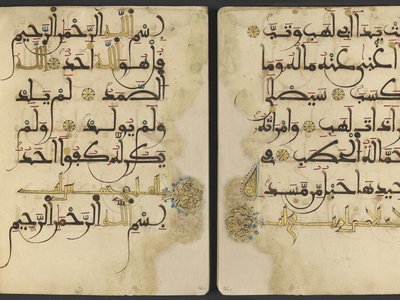 تبت يدا أبي لهب وتب
ما أغنى عنه ماله وما
كسب سيصلى
نارا ذات لهب وامرأته
حمالة الحطب في
جيدها حبل من مسد
بسم الله الرحمن الرحيم
قل هو الله أحد الله
الصمد لم يلد
ولم يولد ولم
يكن له كفوا أحد
الفلق خمس
بسم الله الرحمن الرحيم